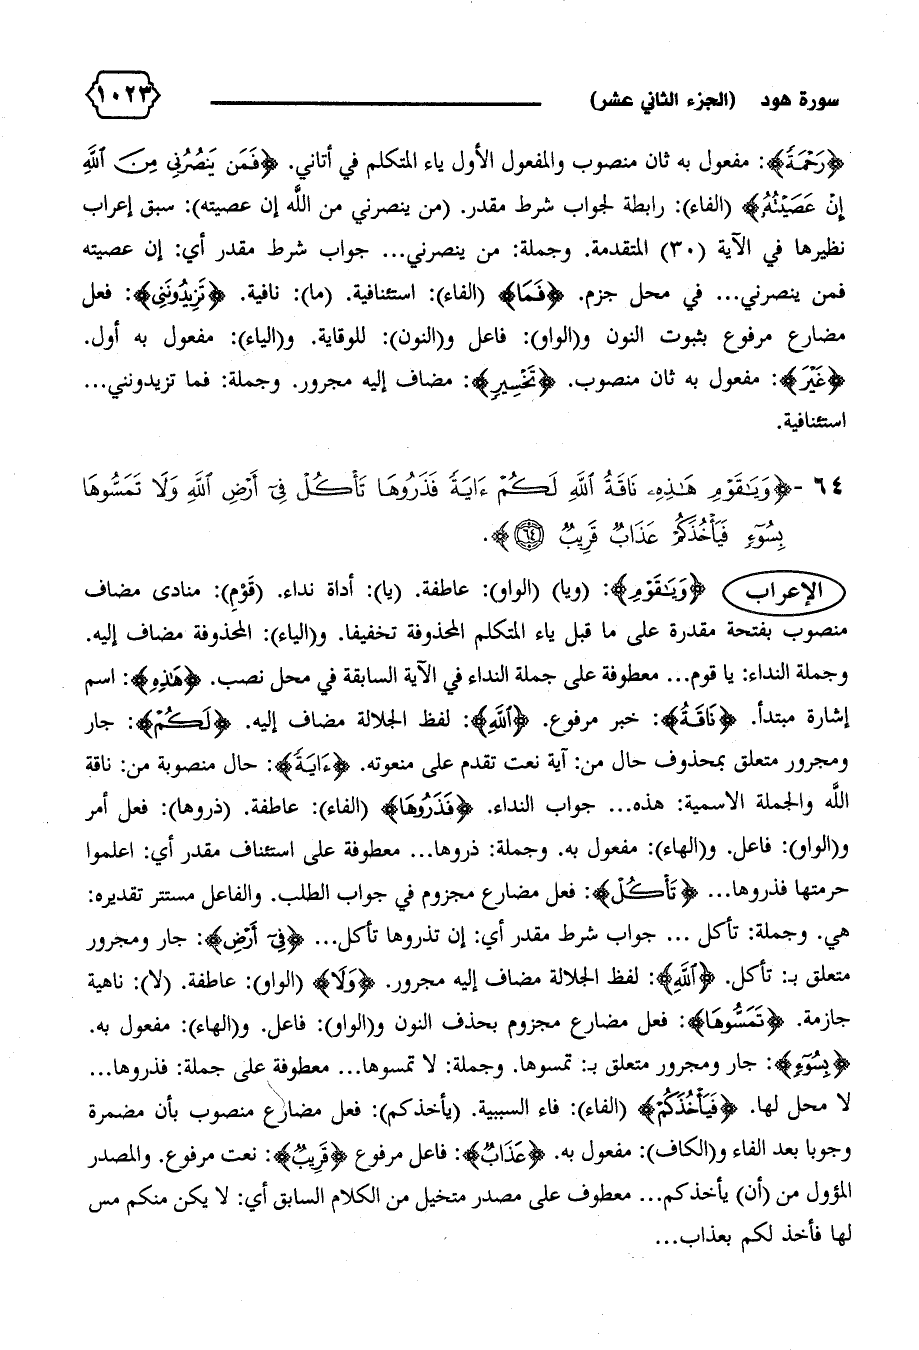 سورة هود (الجزء الثاني عشر) ١٠٢٣
﴿رَحْمَةً﴾: مفعول به ثان منصوب والمفعول الأول ياء المتكلم في أتاني. ﴿فَمَن يَنصُرُنِي مِنَ ٱللَّهِ
إِنْ عَصَيْتُهُۥ﴾ (الفاء): رابطة لجواب شرط مقدر. (من ينصرني من اللَّه إن عصيته): سبق إعراب
نظيرها في الآية (٣٠) المتقدمة. وجملة: من ينصرني... جواب شرط مقدر أي: إن عصيته
فمن ينصرني... في محل جزم. ﴿فَمَا﴾ (الفاء): استئنافية. (ما): نافية. ﴿تَزِيدُونَنِي﴾: فعل
مضارع مرفوع بثبوت النون و(الواو): فاعل و(النون): للوقاية. و(الياء): مفعول به أول.
﴿غَيْرَ﴾: مفعول به ثان منصوب. ﴿تَخْسِيرٍ﴾: مضاف إليه مجرور. وجملة: فما تزيدونني...
استئنافية.
٦٤ -﴿وَيَٰقَوْمِ هَٰذِهِۦ نَاقَةُ ٱللَّهِ لَكُمْ ءَايَةً فَذَرُوهَا تَأْكُلْ فِىٓ أَرْضِ ٱللَّهِ وَلَا تَمَسُّوهَا
بِسُوٓءٍ فَيَأْخُذَكُمْ عَذَابٌ قَرِيبٌ ٦٤﴾.
الإعراب ﴿وَيَٰقَوْمِ﴾: (ويا) (الواو): عاطفة. (يا): أداة نداء. (قَوْمِ): منادى مضاف
منصوب بفتحة مقدرة على ما قبل ياء المتكلم المحذوفة تخفيفا. و(الياء): المحذوفة مضاف إليه.
وجملة النداء: يا قوم... معطوفة على جملة النداء في الآية السابقة في محل نصب. ﴿هَٰذِهِ﴾: اسم
إشارة مبتدأ. ﴿نَاقَةُ﴾: خبر مرفوع. ﴿ٱللَّهِ﴾: لفظ الجلالة مضاف إليه. ﴿لَكُمْ﴾: جار
ومجرور متعلق بمحذوف حال من: آية نعت تقدم على منعوته. ﴿ءَايَةً﴾: حال منصوبة من: ناقة
اللَّه والجملة الاسمية: هذه... جواب النداء. ﴿فَذَرُوهَا﴾ (الفاء): عاطفة. (ذروها): فعل أمر
و(الواو): فاعل. و(الهاء): مفعول به. وجملة: ذروها... معطوفة على استئناف مقدر أي: اعلموا
حرمتها فذروها... ﴿تَأْكُلْ﴾: فعل مضارع مجزوم في جواب الطلب. والفاعل مستتر تقديره:
هي. وجملة: تأكل ... جواب شرط مقدر أي: إن تذروها تأكل... ﴿فِىٓ أَرْضِ﴾: جار ومجرور
متعلق بـ: تأكل. ﴿ٱللَّهِ﴾: لفظ الجلالة مضاف إليه مجرور. ﴿وَلَا﴾ (الواو): عاطفة. (لا): ناهية
جازمة. ﴿تَمَسُّوهَا﴾: فعل مضارع مجزوم بحذف النون و(الواو): فاعل. و(الهاء): مفعول به.
﴿بِسُوٓءٍ﴾: جار ومجرور متعلق بـ: تمسوها. وجملة: لا تمسوها... معطوفة على جملة: فذروها...
لا محل لها. ﴿فَيَأْخُذَكُمْ﴾ (الفاء): فاء السببية. (يأخذكم): فعل مضارع منصوب بأن مضمرة
وجوبا بعد الفاء و(الكاف): مفعول به. ﴿عَذَابٌ﴾: فاعل مرفوع ﴿قَرِيبٌ﴾: نعت مرفوع. والمصدر
المؤول من (أن) يأخذكم... معطوف على مصدر متخيل من الكلام السابق أي: لا يكن منكم مس
لها فأخذ لكم بعذاب...